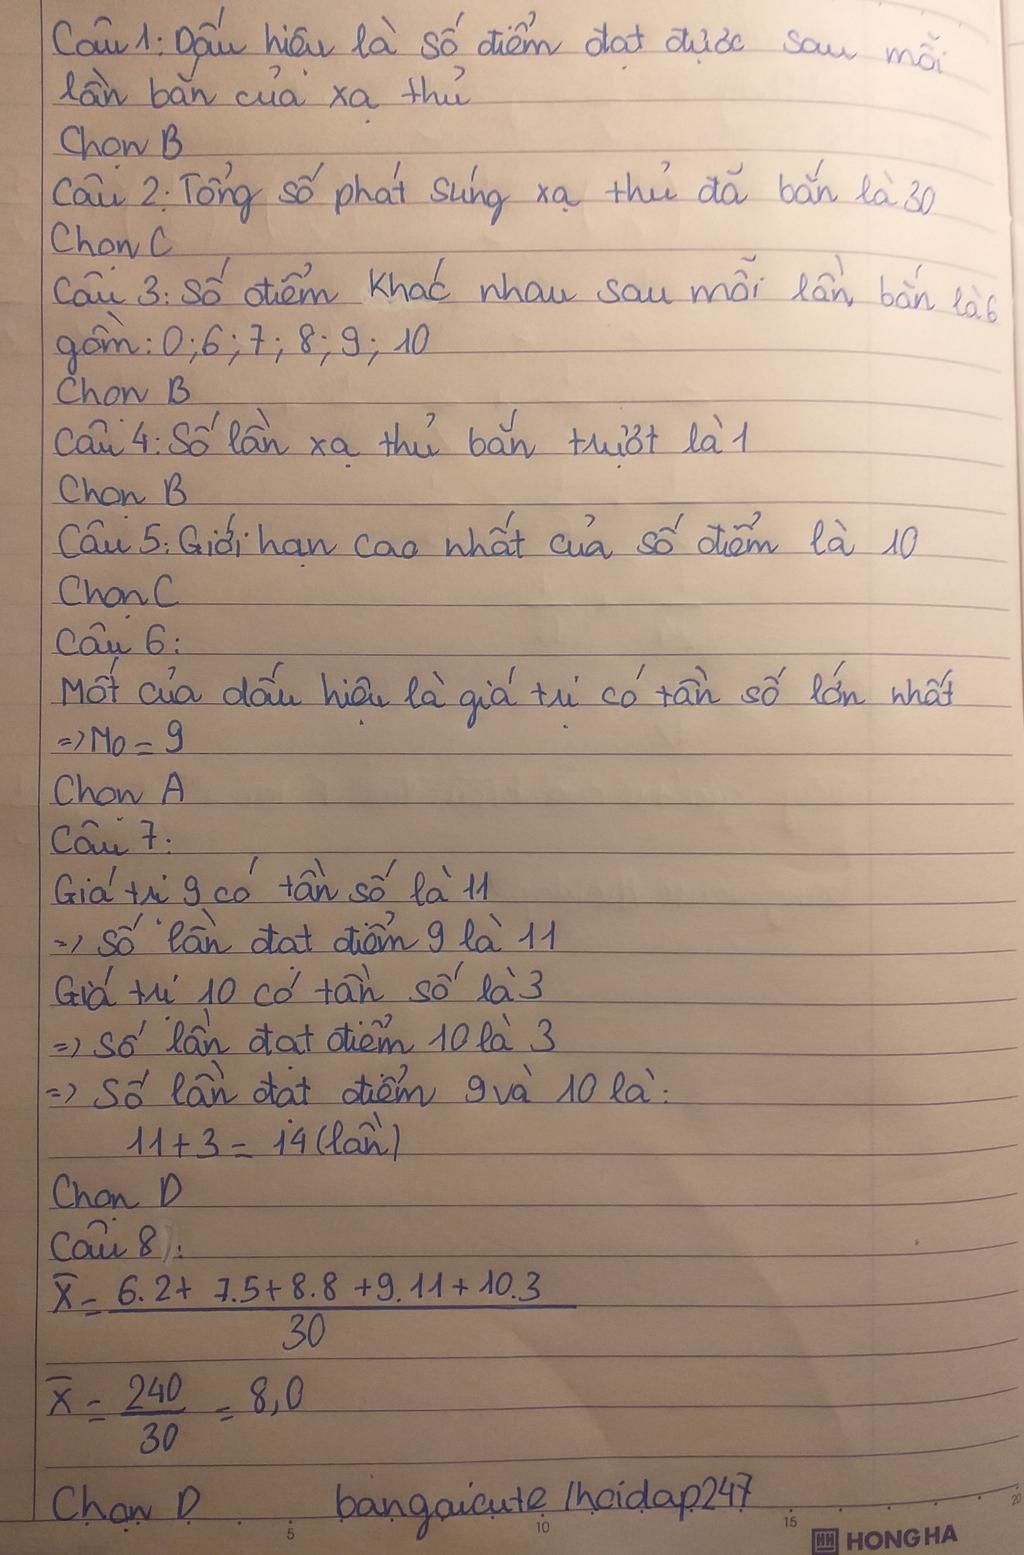 Câu 1: Dấu hiệu là số điểm đạt được sau mỗi
lần bắn của xạ thủ
Chọn B
Câu 2: Tổng số phát súng xạ thủ đã bắn là 30
Chọn C
Câu 3: Số điểm khác nhau sau mỗi lần bắn là 6
gồm: 0; 6; 7; 8; 9; 10
Chọn B
Câu 4: Số lần xạ thủ bắn trượt là 1
Chọn B
Câu 5: Giới hạn cao nhất của số điểm là 10
Chọn C
Câu 6:
Mốt của dấu hiệu là giá trị có tần số lớn nhất
=> Mo = 9
Chọn A
Câu 7:
Giá trị 9 có tần số là 11
=> Số lần đạt điểm 9 là 11
Giá trị 10 có tần số là 3
=> Số lần đạt điểm 10 là 3
=> Số lần đạt điểm 9 và 10 là:
11 + 3 = 14 (lần)
Chọn D
Câu 8:
X̄ = 6.2 + 7.5 + 8.8 + 9.11 + 10.3
30
X̄ = 240 = 8,0
30
Chọn D bangaicute /hoidap247
5 10 15 20
HH HONG HA